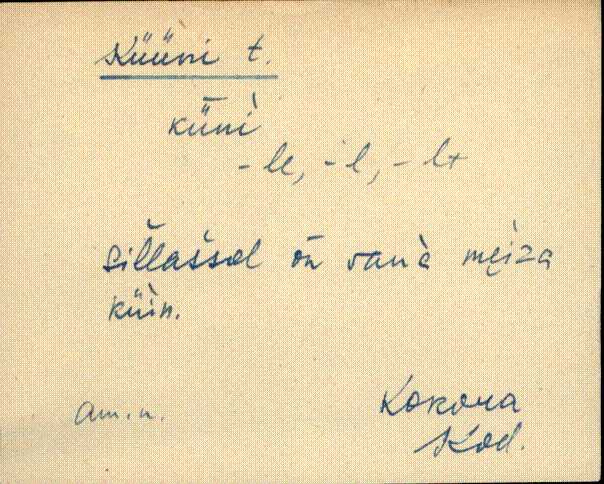 Küüni t.
kǖnì
-le, -l, -lt
sillaššal ōn vanà męiza
küìn.
am.n.
Kokora
Kod.